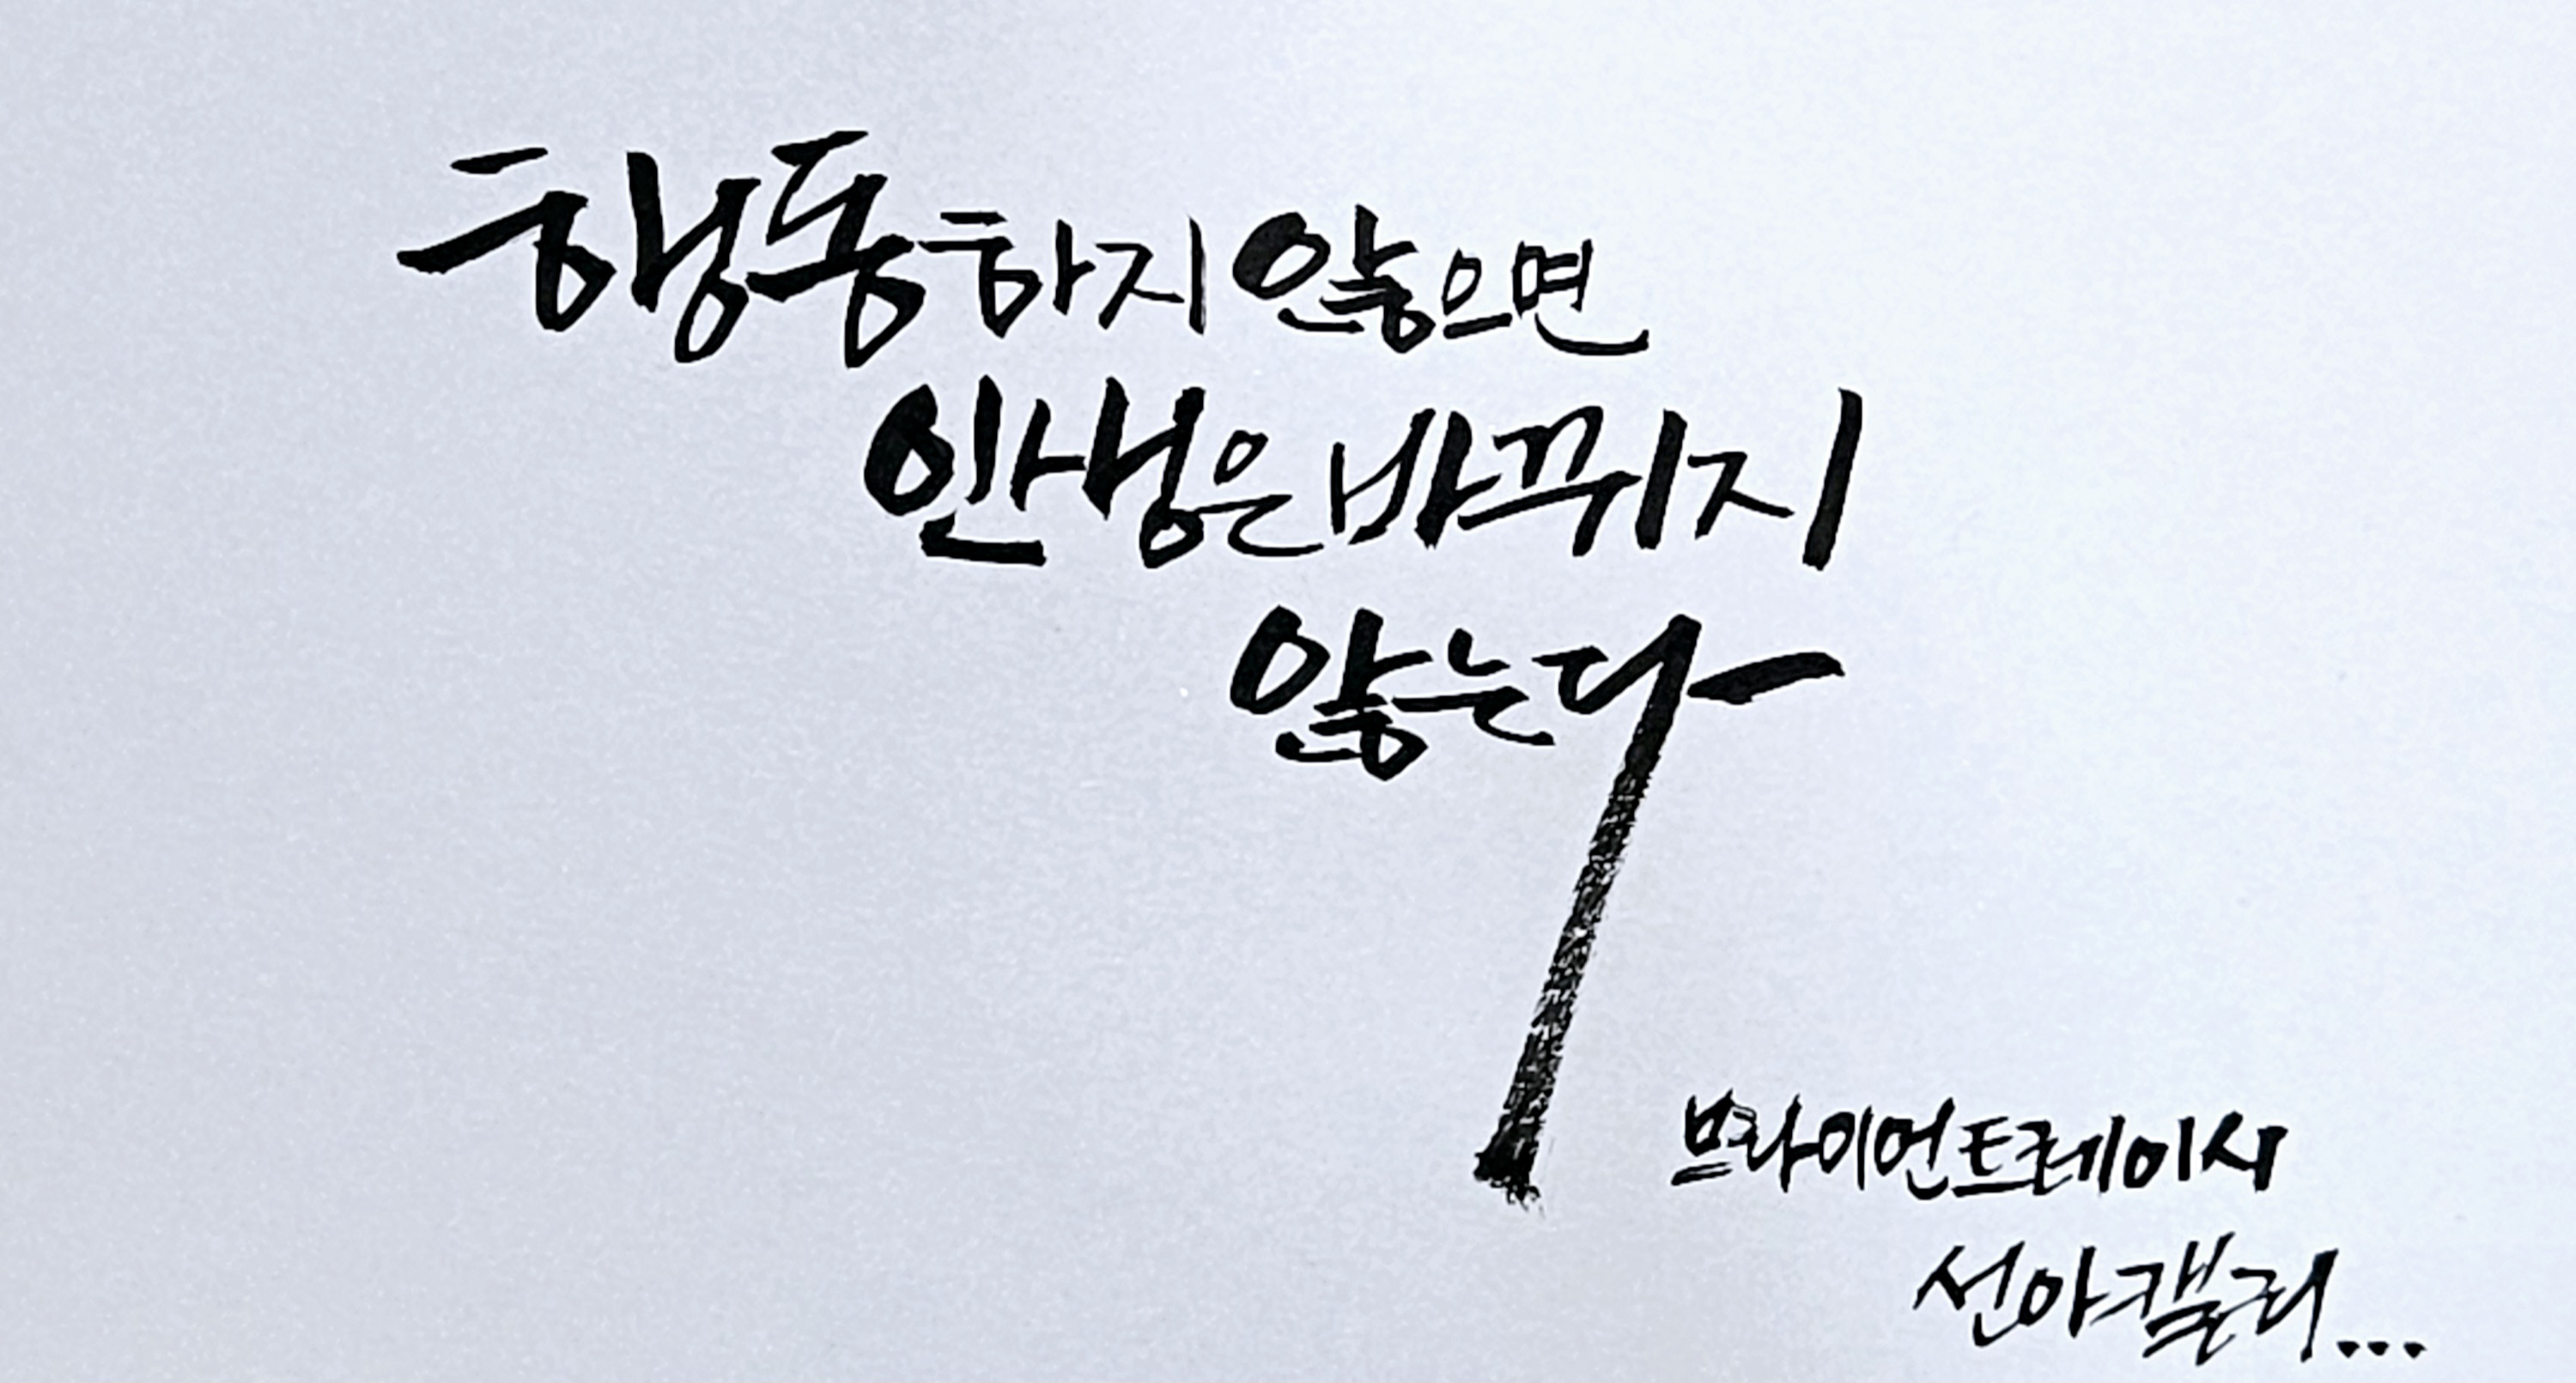 행동하지 않으면
인생은 바뀌지
않는다
브라이언트레이시
선아캘리...